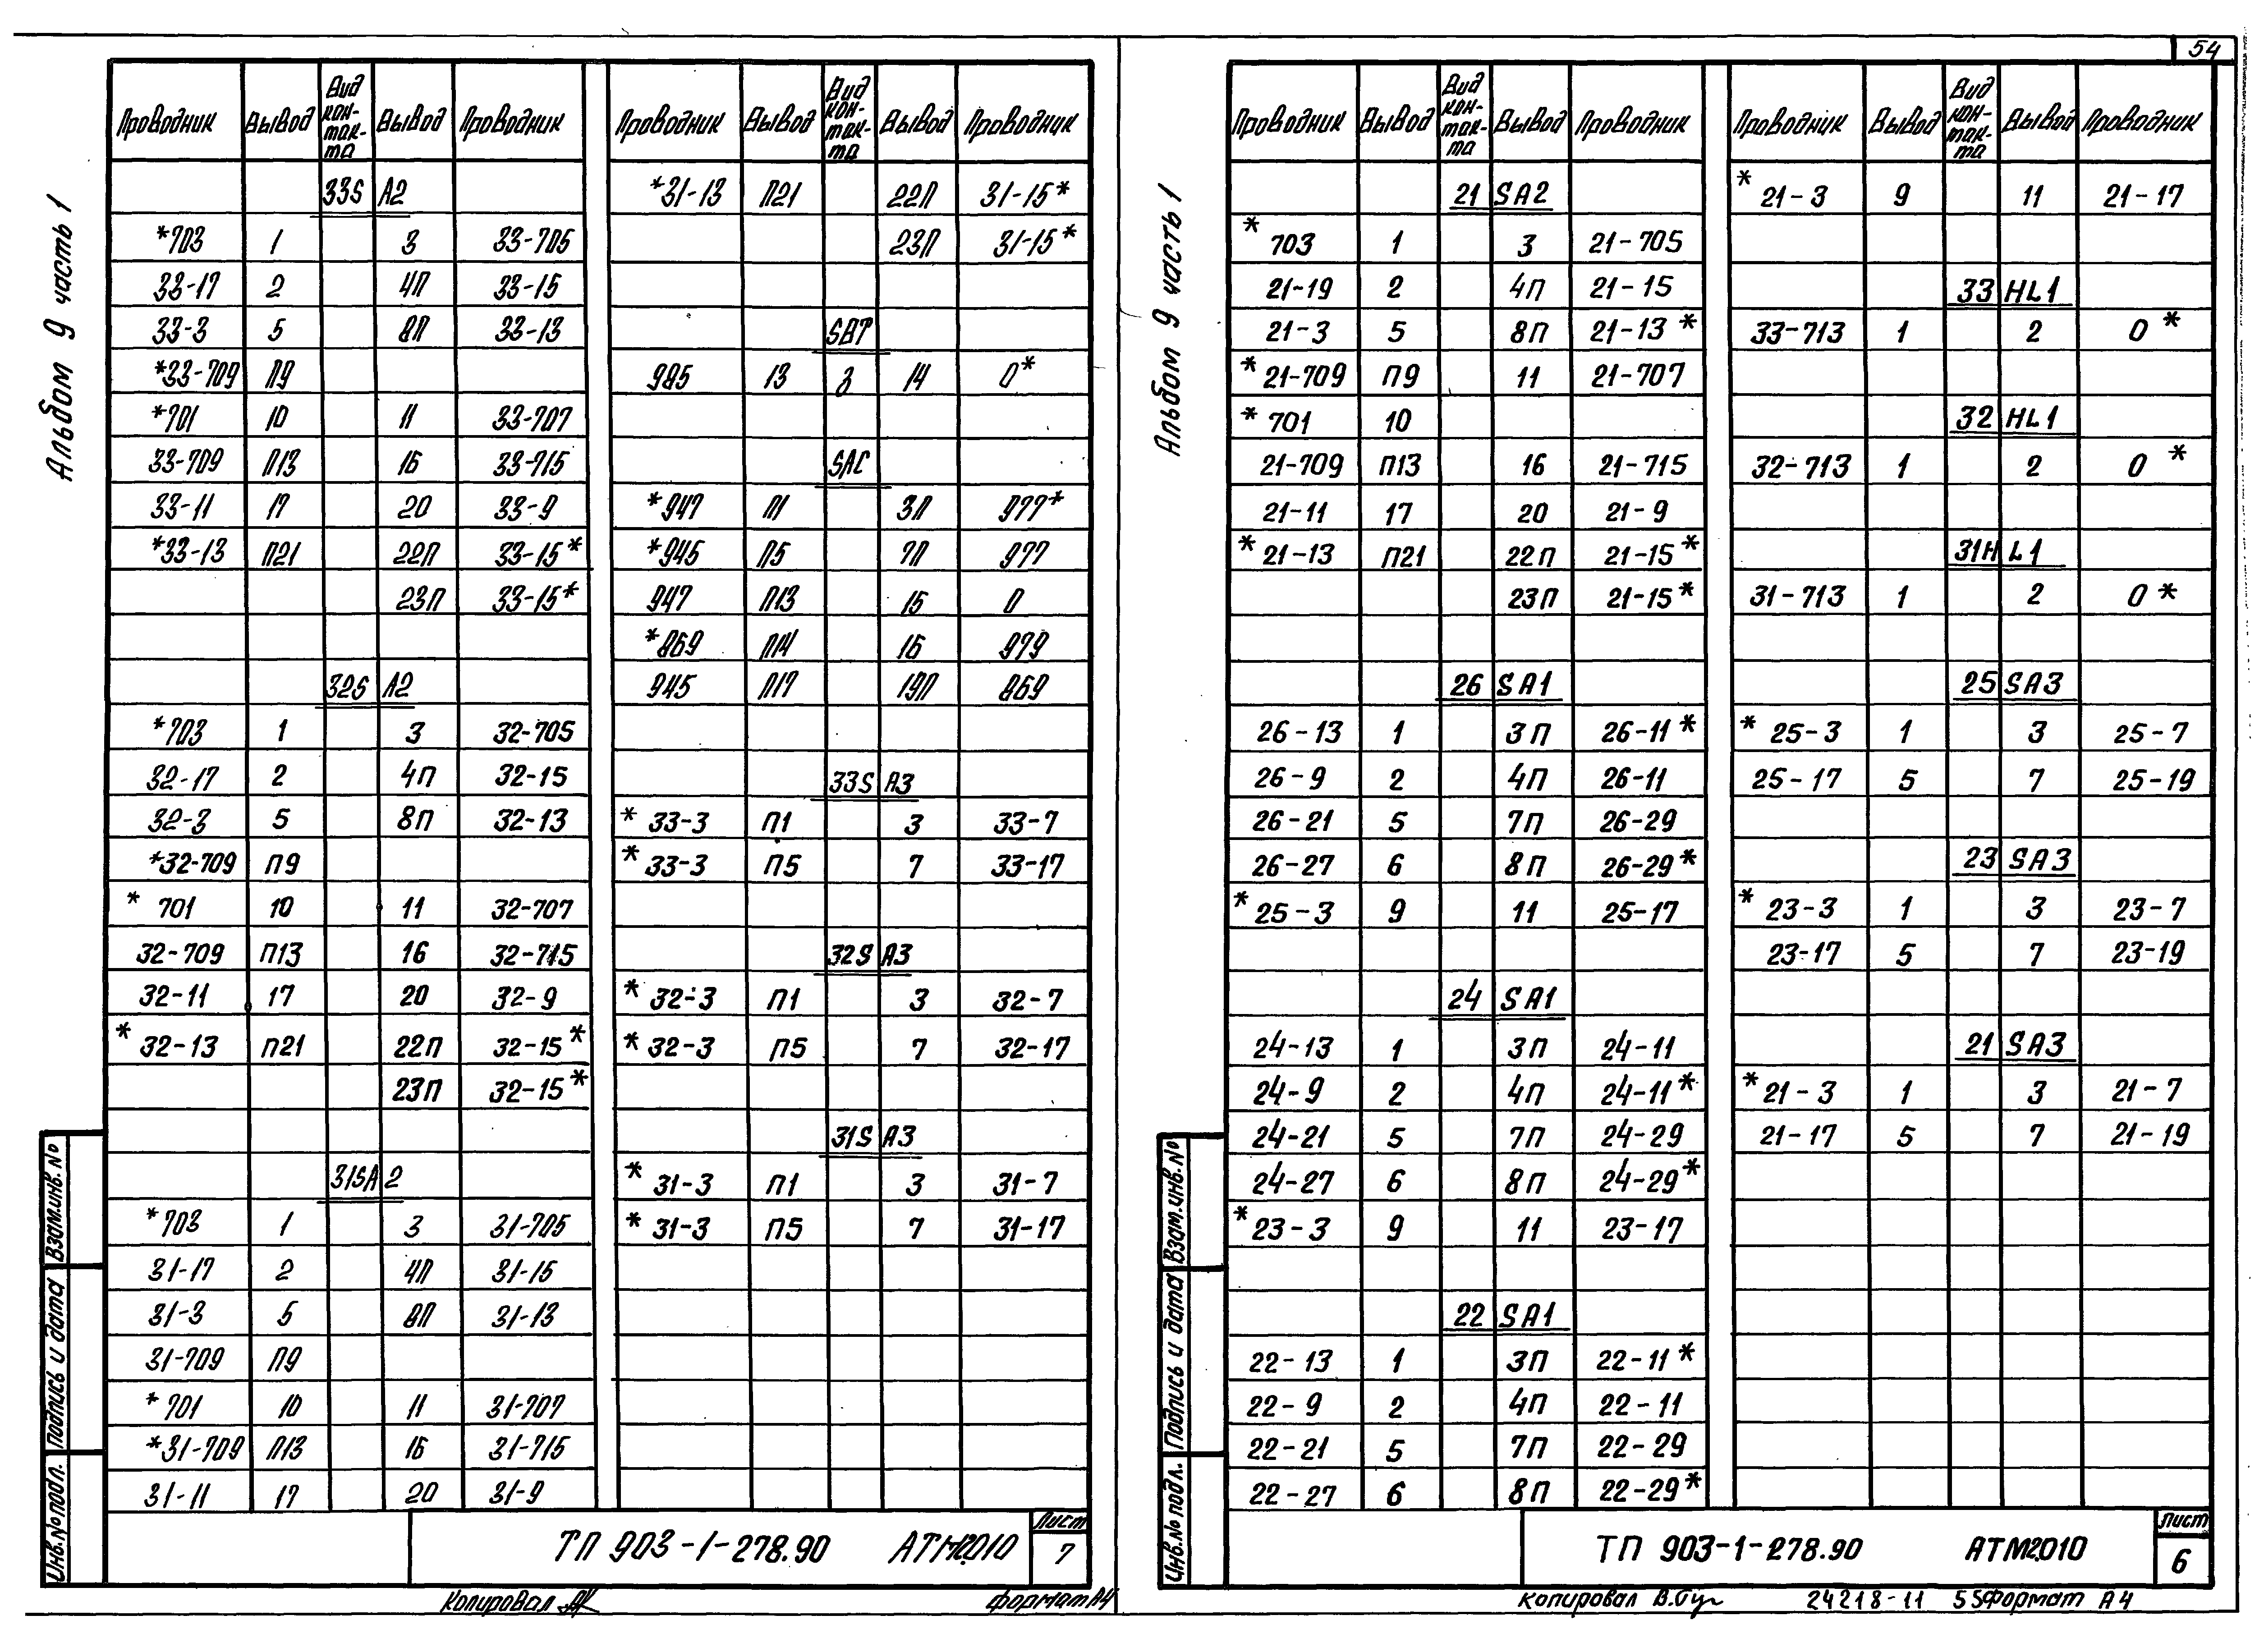 54
Альбом 9 часть 1
Проводник Вывод Вид контакта Вывод Проводник
33S A2
*703 1 3 33-705
33-17 2 4П 33-15
33-3 5 8П 33-13
*33-709 П9
*701 10 11 33-707
33-709 П13 16 33-715
33-11 17 20 33-9
*33-13 П21 22П 33-15*
23П 33-15*
32S A2
*703 1 3 32-705
32-17 2 4П 32-15
32-3 5 8П 32-13
*32-709 П9
* 701 10 11 32-707
32-709 П13 16 32-715
32-11 17 20 32-9
* 32-13 П21 22П 32-15*
23П 32-15*
31SA2
*703 1 3 31-705
31-17 2 4П 31-15
31-3 5 8П 31-13
31-709 П9
*701 10 11 31-707
*31-709 П13 16 31-715
31-11 17 20 31-9
Проводник Вывод Вид контакта Вывод Проводник
*31-13 П21 22П 31-15*
23П 31-15*
SBT
985 13 з 14 0*
SAC
*947 П1 3П 977*
*945 П5 7П 977
947 П13 15 0
*869 П14 16 979
945 П17 19П 869
33S A3
* 33-3 П1 3 33-7
* 33-3 П5 7 33-17
32S A3
* 32-3 П1 3 32-7
* 32-3 П5 7 32-17
31S A3
* 31-3 П1 3 31-7
* 31-3 П5 7 31-17
Взам.инв.№
Подпись и дата
Инв.№подл.
ТП 903-1-278.90 АТМ2.010
Лист
7
Копировал
формат А4
Альбом 9 часть 1
Проводник Вывод Вид контакта Вывод Проводник
21 SA2
* 703 1 3 21-705
21-19 2 4П 21-15
21-3 5 8П 21-13*
* 21-709 П9 11 21-707
* 701 10
21-709 П13 16 21-715
21-11 17 20 21-9
* 21-13 П21 22П 21-15*
23П 21-15*
26 SA1
26-13 1 3П 26-11*
26-9 2 4П 26-11
26-21 5 7П 26-29
26-27 6 8П 26-29*
* 25-3 9 11 25-17
24 SA1
24-13 1 3П 24-11
24-9 2 4П 24-11*
24-21 5 7П 24-29
24-27 6 8П 24-29*
* 23-3 9 11 23-17
22 SA1
22-13 1 3П 22-11*
22-9 2 4П 22-11
22-21 5 7П 22-29
22-27 6 8П 22-29*
Проводник Вывод Вид контакта Вывод Проводник
* 21-3 9 11 21-17
33 HL1
33-713 1 2 0*
32 HL1
32-713 1 2 0*
31 HL1
31-713 1 2 0*
25 SA3
* 25-3 1 3 25-7
25-17 5 7 25-19
23 SA3
* 23-3 1 3 23-7
23-17 5 7 23-19
21 SA3
* 21-3 1 3 21-7
21-17 5 7 21-19
Взам.инв.№
Подпись и дата
Инв.№подл.
ТП 903-1-278.90 АТМ2.010
Лист
6
копировал В.Буг 24218-11 55 Формат А4